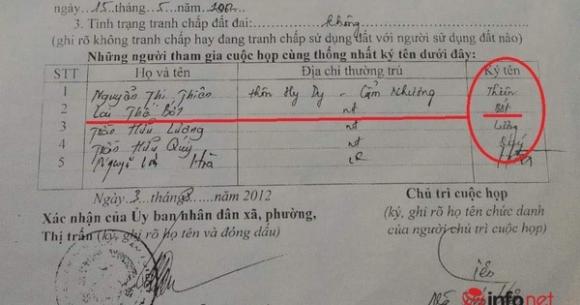 ngày...15....tháng...5....năm...2002...
3. Tình trạng tranh chấp đất đai: ... không
(ghi rõ không tranh chấp hay đang tranh chấp sử dụng đất với người sử dụng đất nào)
Những người tham gia cuộc họp cùng thống nhất ký tên dưới đây:
STT Họ và tên Địa chỉ thường trú Ký tên
1 Nguyễn Thị Thiên thôn Hy Duy - Cẩm Nhượng Thiên
2 Lài Thị Bót nt Bót
3 Trần Hữu Lương nt Lương
4 Trần Hữu Quý nt Quý
5 Nguyễn Hà
Ngày...3...tháng...8....năm 2012
Xác nhận của Ủy ban nhân dân xã, phường, Chủ trì cuộc họp
Thị trấn (ký, ghi rõ họ tên và đóng dấu) (ký, ghi rõ họ tên chức danh
của người chủ trì cuộc họp)
infonet